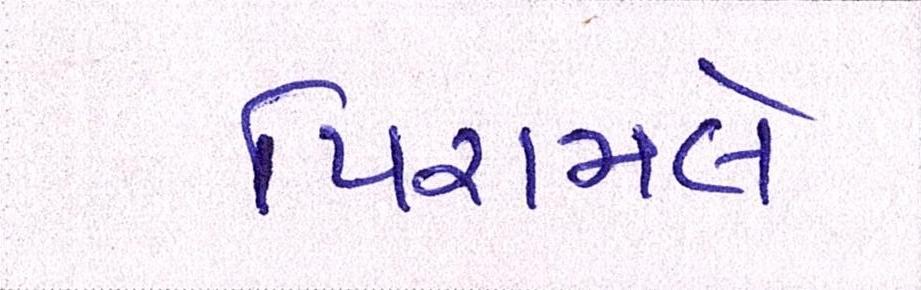 પિરામલે